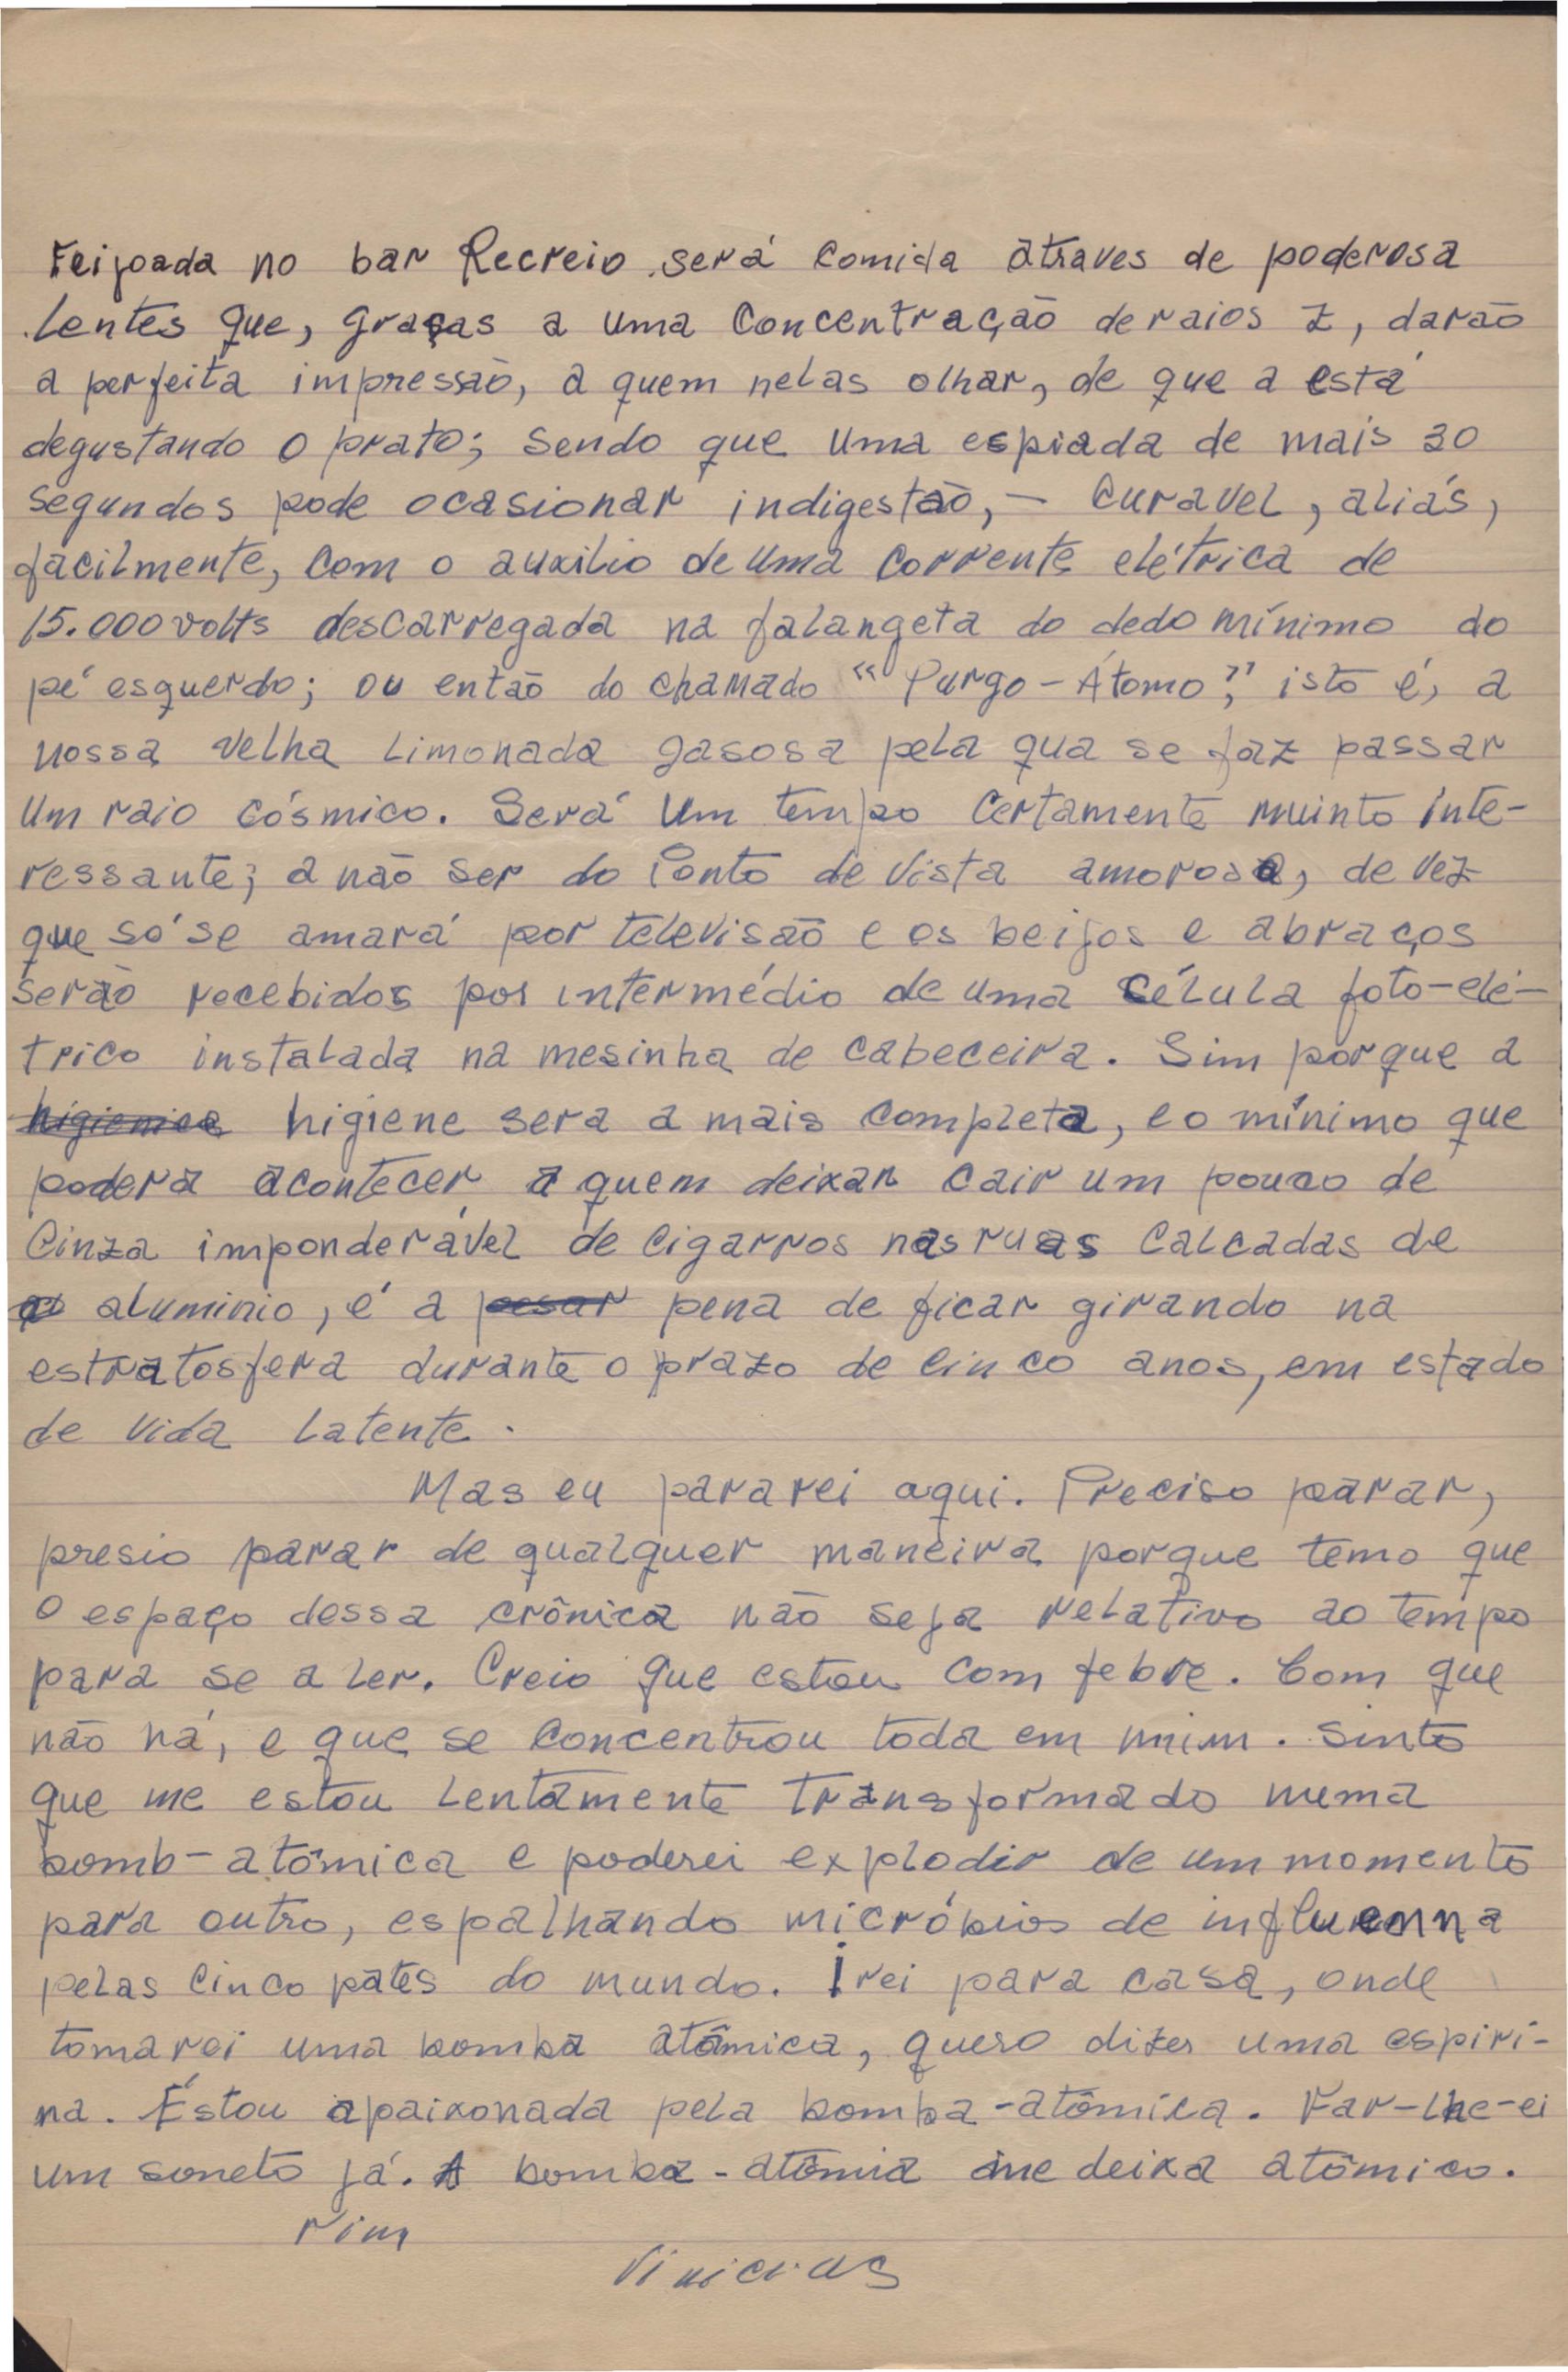 Feijoada no bar Recreio será comida atraves de poderosa
lentes que, graças a uma concentração de raios Z, darão
a perfeita impressão, a quem nelas olhar, de que a está
degustando o prato; sendo que uma espiada de mais 30
segundos pode ocasionar indigestão, – curavel, aliás,
facilmente, com o auxilio de uma corrente elétrica de
15.000 volts descarregada na falangeta do dedo mínimo do
pé esquerdo; ou então do chamado "Purgo-Átomo", isto é, a
nossa velha limonada gasosa pela qua se faz passar
um raio cósmico. Será um tempo certamente muinto inte-
ressante; a não ser do Ponto de vista amoroso, de vez
que só se amará por televisão e os beijos e abraços
serão recebidos por intermédio de uma célula foto-elé-
trico instalada na mesinha de cabeceira. Sim porque a
higienica higiene sera a mais completa, e o mínimo que
podera acontecer a quem deixar cair um pouco de
cinza imponderável de cigarros nas ruas calcadas de
aluminio, é a pesar pena de ficar girando na
estratosfera durante o prazo de cinco anos, em estado
de vida latente.
Mas eu pararei aqui. Preciso parar,
presio parar de qualquer maneira porque temo que
o espaço dessa crônica não seja relativo ao tempo
para se a ler. Creio que estou com febre. Com que
não há, e que se concentrou toda em mim. Sinto
que me estou lentamente transformado numa
bomb-atômica e poderei explodir de um momento
para outro, espalhando micróbios de influenna
pelas cinco pates do mundo. Irei para casa, onde
tomarei uma bomba atâmica, quero dizer uma espiri-
na. Éstou apaixonada pela bomba-atômica. Far-lhe-ei
um soneto já. A bomba-atômia me deixa atômico.
rim
Vinicius